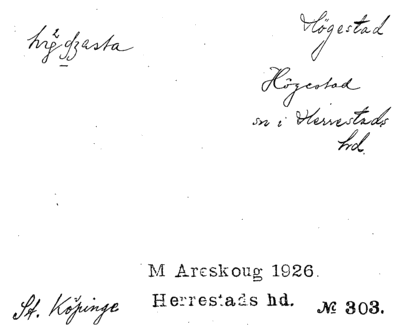 Högestad
Högestad
sn i Herrestads
hd.
M Areskoug 1926.
St. Köpinge Herrestads hd. № 303.